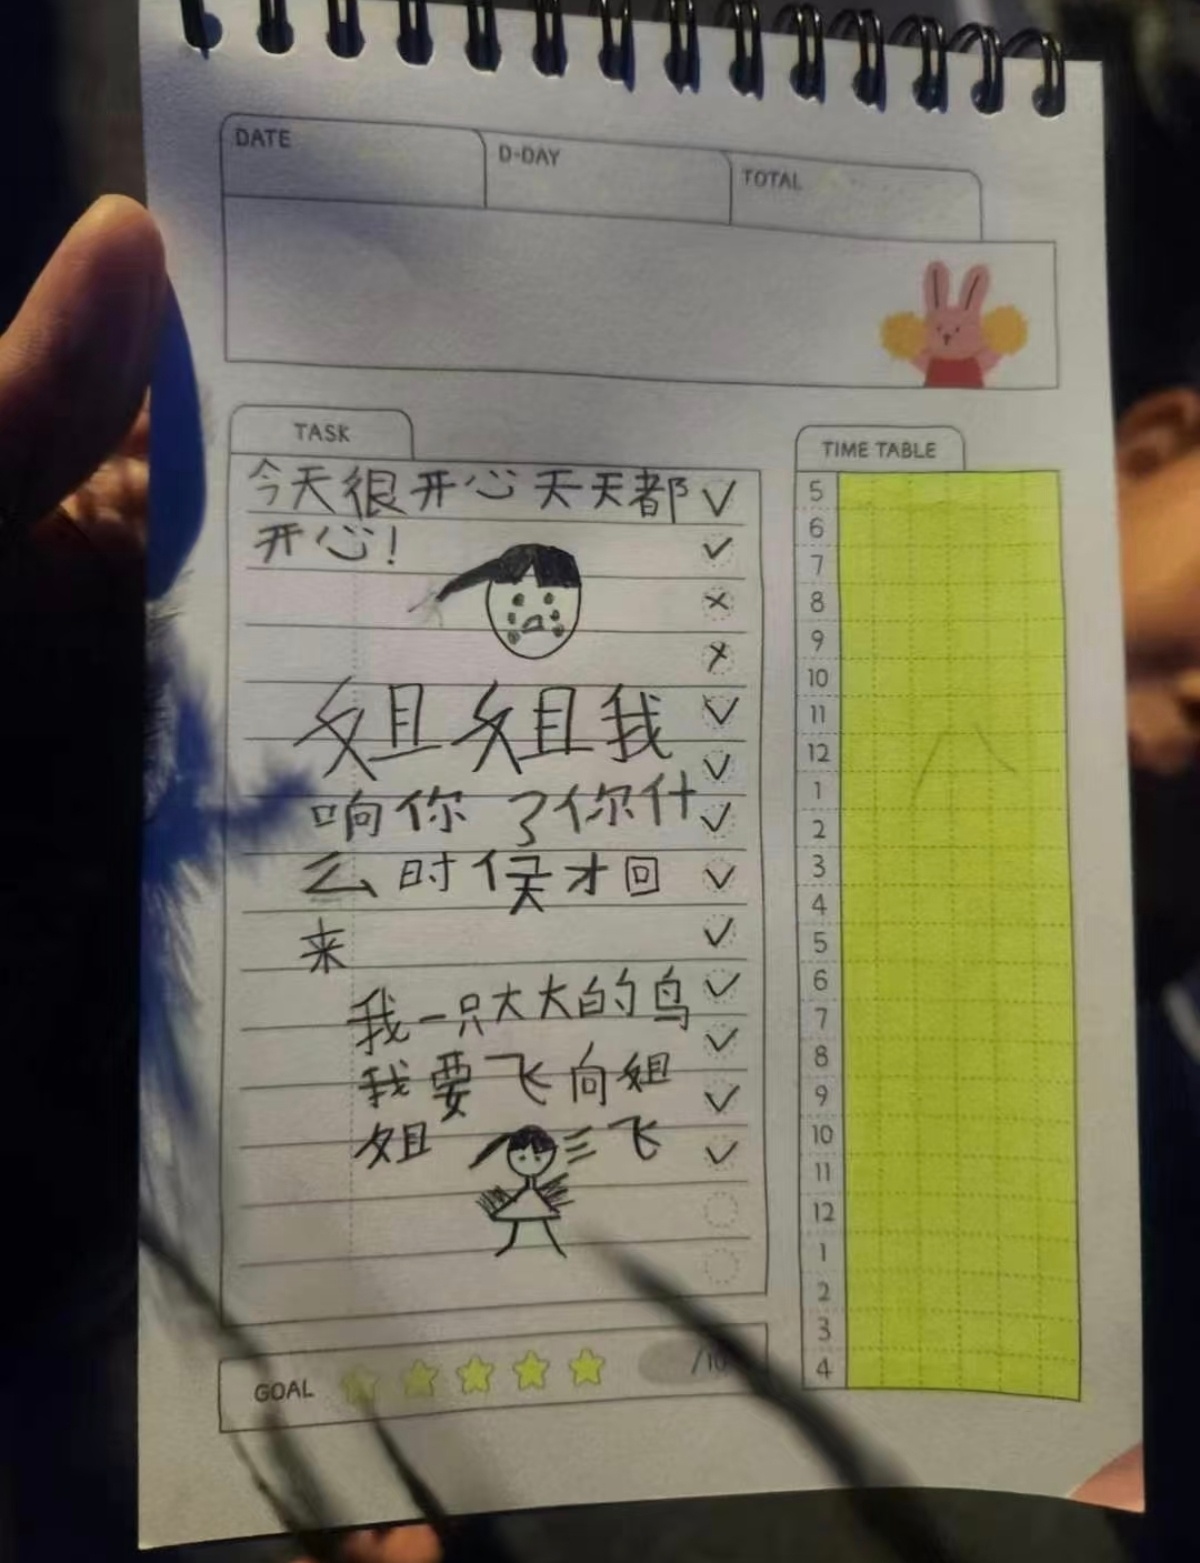 DATE
D-DAY
TOTAL
TASK
今天很开心天天都
开心!
姐姐我
响你了你什
么时候才回
来
我一只大大的鸟
我要飞向姐
姐 三飞
GOAL
/10
TIME TABLE
5
6
7
8
9
10
11
12
1
2
3
4
5
6
7
8
9
10
11
12
1
2
3
4